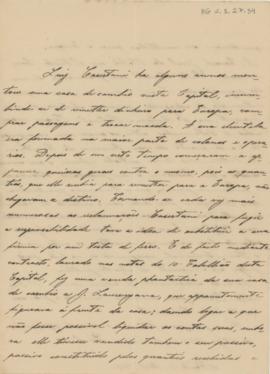 Luiz Caseltani ha alguns annos mon-
tou uma casa de cambio nesta Capital, incum-
bindo-se de remetter dinheiro para Europa, com-
prar passagens e trocar moeda. A sua clientela
era formada na maior parte de colonos e opera-
rios. Depois de um certo tempo começaram a ap-
parecer queixas geraes contra o mesmo, pois as quan-
tias, que elle recebia para remetter para a Europa, não
chegavam a destino. Tornando-se cada vez mais
numerosas as reclamações Caseltani para fugir
a responsabilidade teve a idéa de substituir a sua
firma por um testa de ferro. E de facto mediante
contracto, lavrado nas notas do 10 Tabellião desta
Capital, fez uma venda phantastica da sua casa
de cambio a J. que apparentemente
figurava á frente da casa; dando logo a que
não fosse possivel liquidar as contas suas,
elle tivesse vendido tambem o seu passivo,
passivo constituido pelas quantias recebidas e